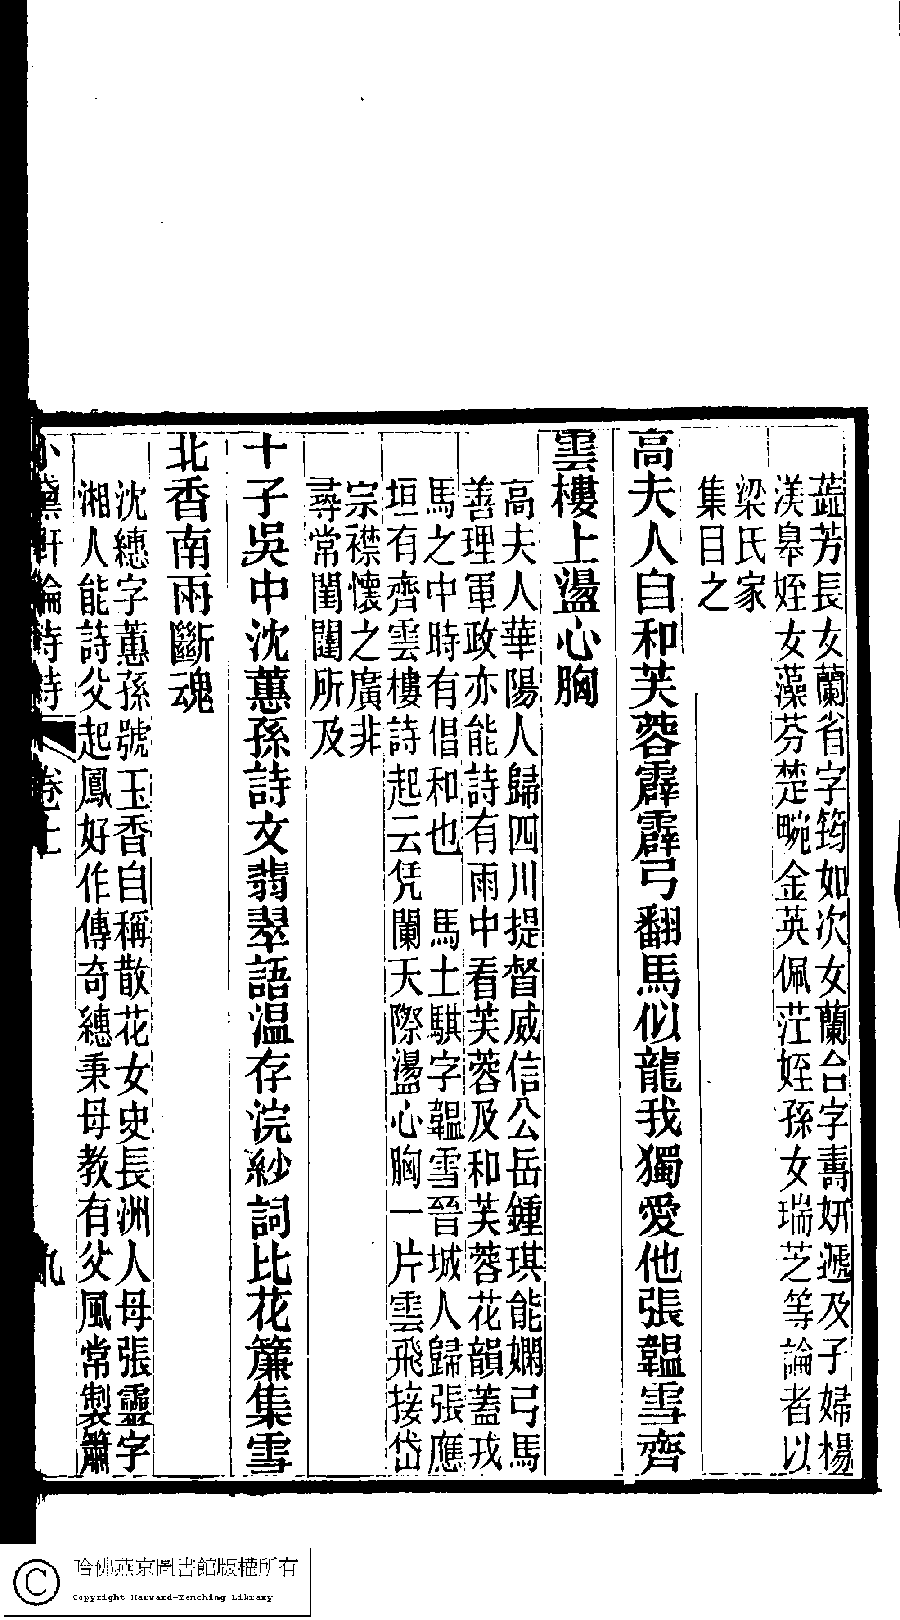 蕋芳長女蘭省字筠如次女蘭台字壽妍遞及子婦楊
渼皋姪女藻芬楚畹金英佩茳姪孫女瑞芝等論者以
梁氏家
集目之
高夫人自和芙蓉霹靂弓翻馬似龍我獨愛他張韞雪齊
雲樓上盪心胸
高夫人華陽人歸四川提督威信公岳鍾琪能嫻弓馬
善理軍政亦能詩有雨中看芙蓉及和芙蓉花韻蓋戎
馬之中時有倡和也　馬士騏字韞雪晉城人歸張應
垣有齊雲樓詩起云凭闌天際盪心胸一片雲飛接岱
宗襟懷之廣非
尋常閨闥所及
十子吳中沈蕙孫詩文翡翠語溫存浣紗詞比花簾集雪
北香南雨斷魂
沈纕字蕙孫號玉香自稱散花女史長洲人母張靈字
湘人能詩父起鳳好作傳奇纕秉母教有父風常製簫
小黛軒論詩詩　卷上　九
哈佛燕京圖書館版權所有
Copyright Harvard-Yenching Library